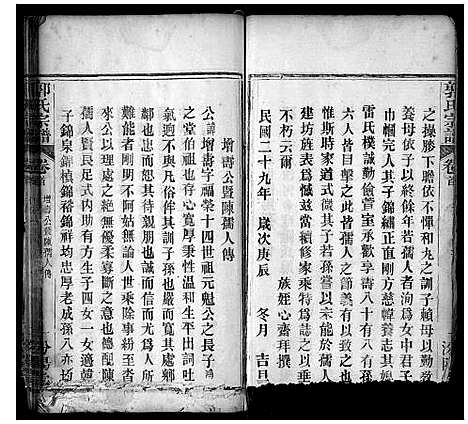 之操膝下膽依不憚和九之訓子賴母以勤
養母依子以終餘年若孺人者洵爲女中君子
巾幗完人其撫子錦繡正直剛方慈幃養志其媳
雷氏樸誠勤儉萱室承歡享壽八十有八有孫
六人皆目擊之此皆孺人之節義有以致之也
惟我郭家時道式微其子若孫嘗以未能於孺人
建坊旌表爲憾茲當續修家乘特爲誌之以垂
不朽云爾
族姪心齋拜撰
民國二十九年 歲次庚辰 冬月 吉日
郭氏宗譜
卷首
增壽公暨陳孺人傳
公諱增壽字福榮十四世祖元魁公之長子
之堂伯也存心寬厚秉性溫和生平出詞吐
氣迥不與凡俗侔其訓子孫也嚴而寬其處鄉
鄰也忠而恕其交親朋也誠而信言其所當
難能者剛明不阿姑無論人世乘除事紛至
來公處之綽無優柔寡斷之意也德配陳
孺人賢良足式內助有方生子四女一女適韓
子錦泉錦楨錦裕錦祥均忠厚老成孫八亦均
郭氏宗譜
卷首
增壽公暨陳孺人傳
汾陽堂